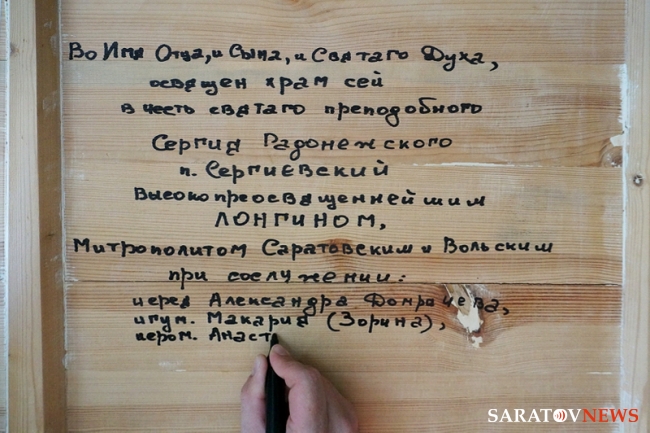 Во Имя Отца, и Сына, и Святаго Духа,
освящен храм сей
в честь святаго преподобного
Сергия Радонежского
п. Сергиевский
Высокопреосвященнейшим
ЛОНГИНОМ,
Митрополитом Саратовским и Вольским
при сослужении:
иерея Александра Домрачева,
игум. Макария (Зорина),
иером. Анаст
SARATOVNEWS